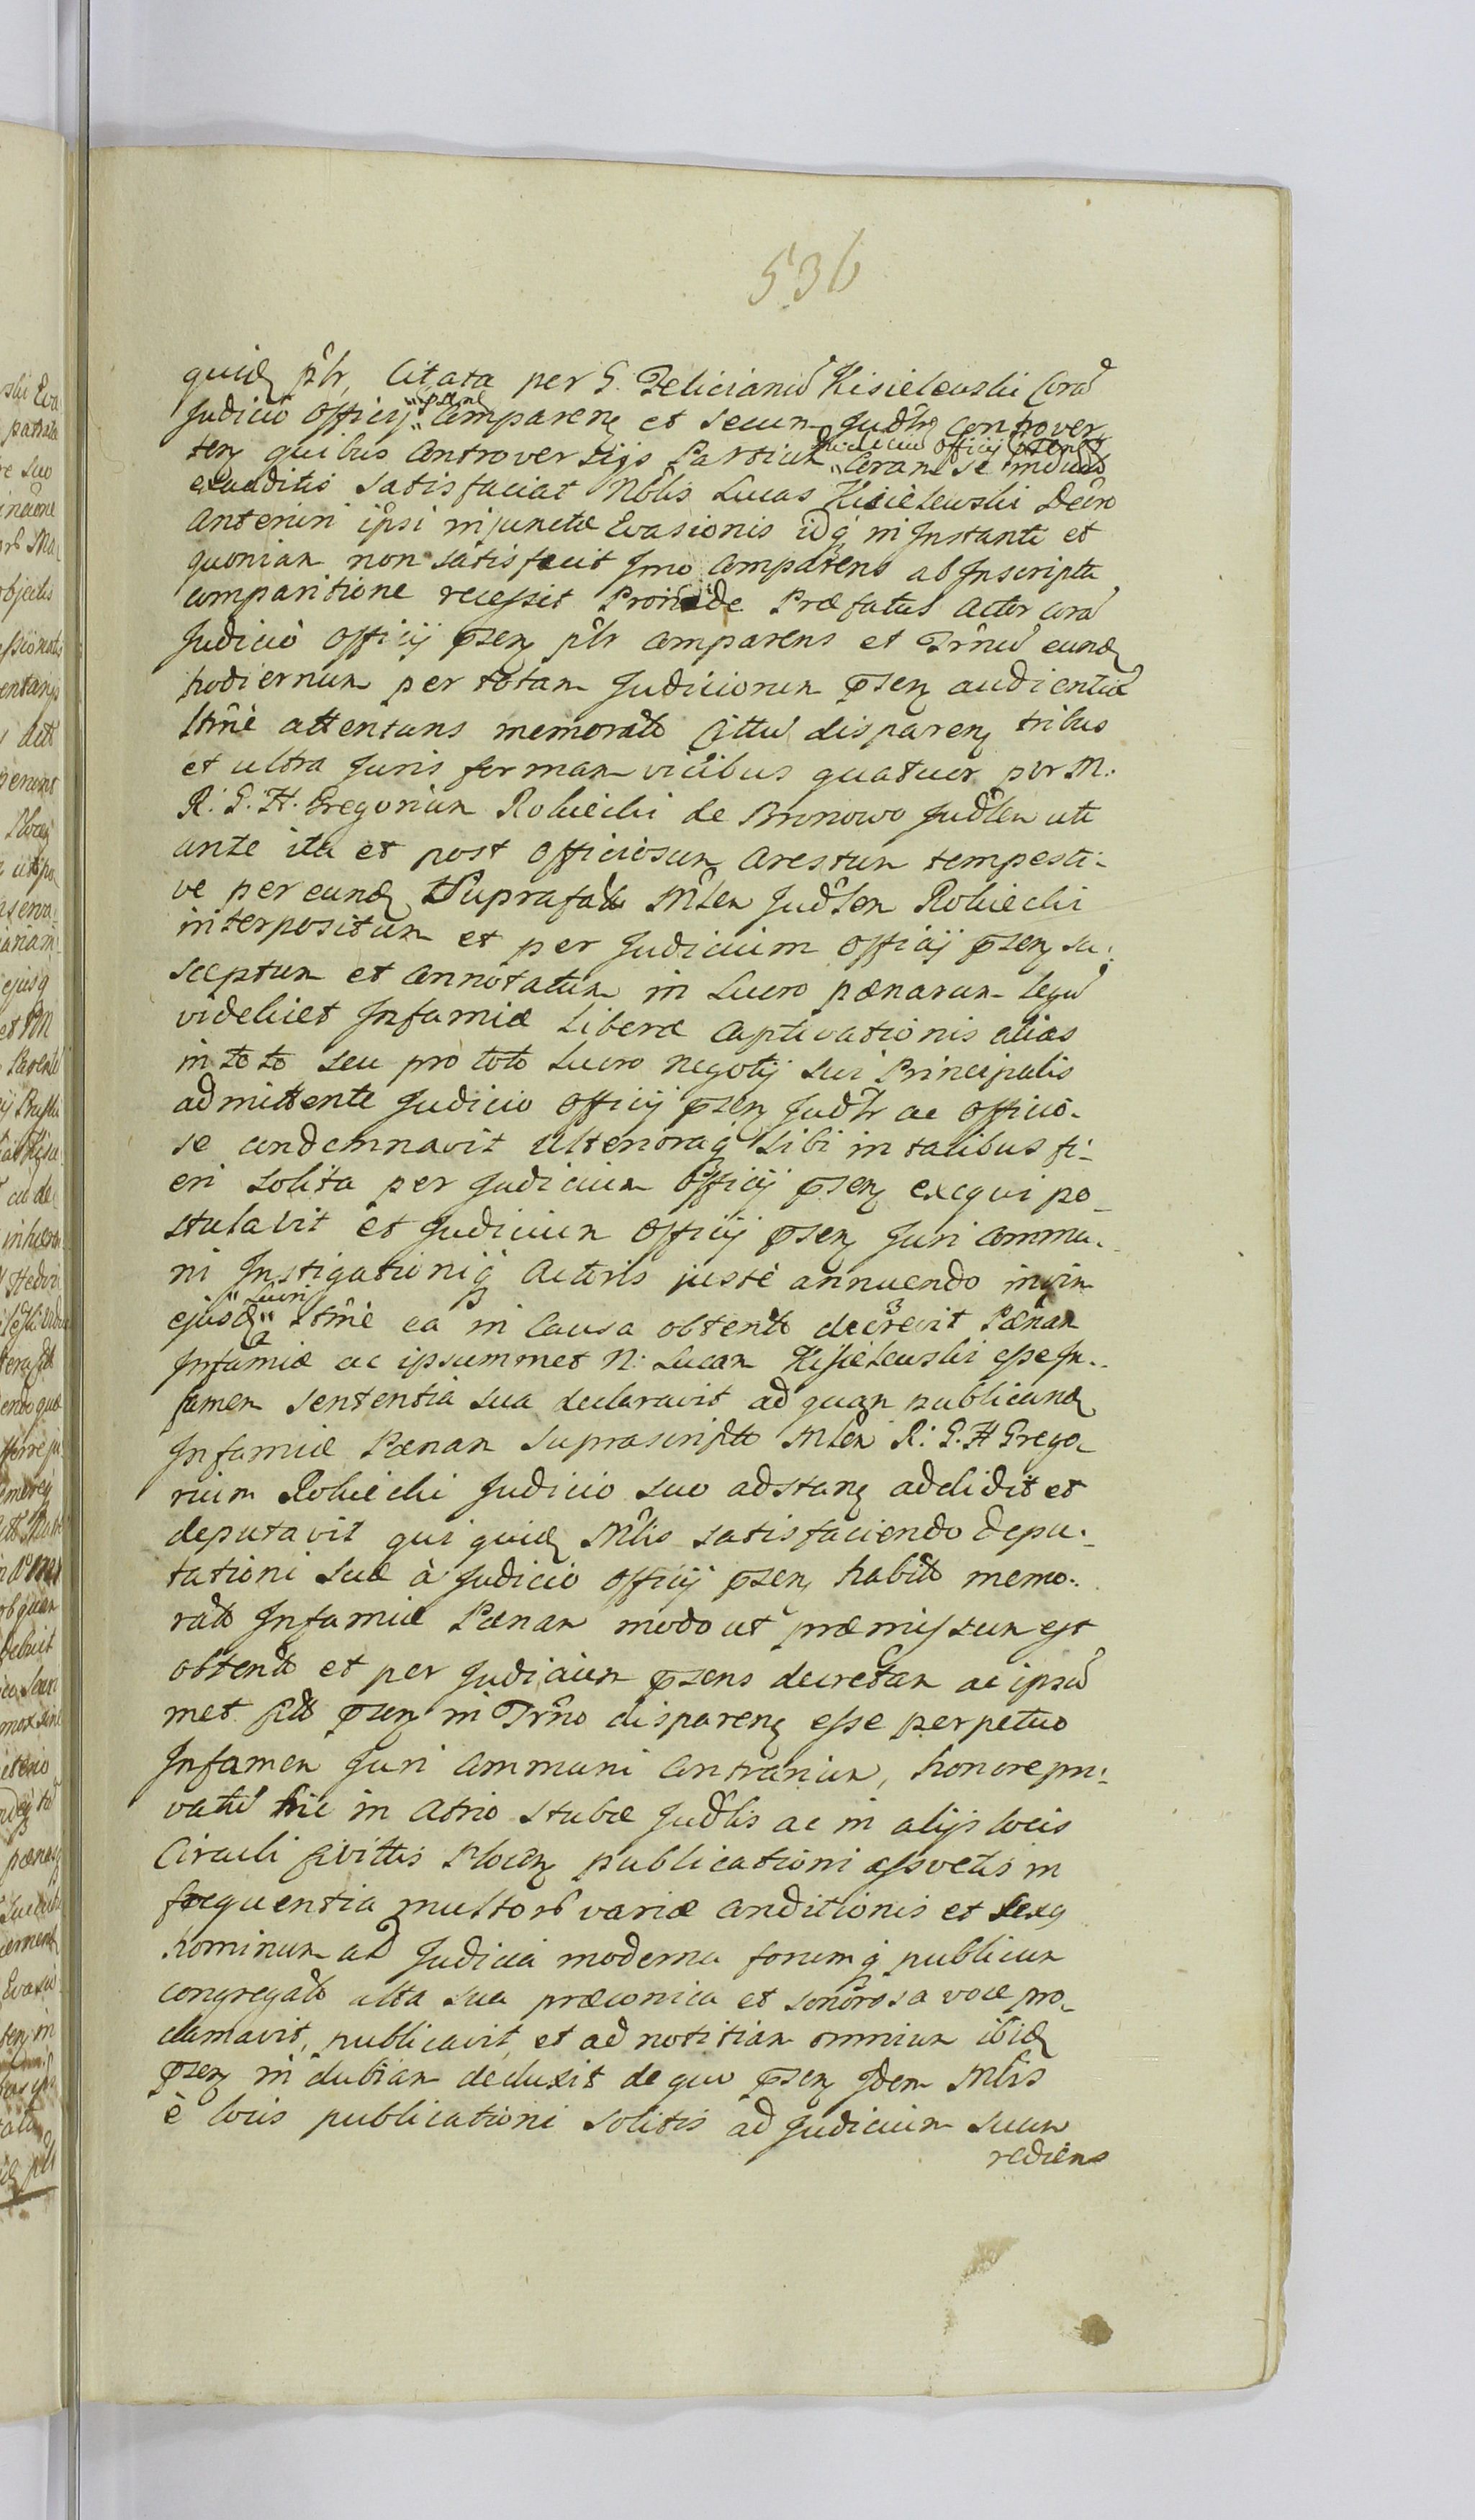 536
quidē pr̂lr Citata per G. Felicianū Kisielewski Corā
Judicio Officij "psen̄" Compareñ et secum Judˆlr̂ controver
teñ quibus Controversijs Partium "Judicium Officij psens" Coram se
exauditis satisfaciat Nobˆlis Lucas Kisielewski Decro
Anteriori ipsi injunctæ Evasionis idq́ in Instanti et
quoniam non satisfecit Imo Comparens ab Inscripta
comparitione recessit Proinde Præfatus Actor corā
Judicio Officij psen̄ pˆlr comparens et Trˆnū eundē
hodiernum per totam Judiciorum psen̄ audientiā
ltrn̂è attentans memoratū Cittū dispareñ tribus
et ultra Juris formam vicibus quatuor per M.
R. G. H. Gregorium Robiecki de Bronowo Judˆlem uti
ante ita et post officiosum Arestum tempesti-
ve per eundē Suprafatū Mˆlem Judˆlem Robiecki
interpositum et per Judicium Officij psen̄ su-
sceptum et annotatum in Lucro pænarum Legū
videlicet Infamiæ Liberæ Captivationis alias
in toto seu pro toto Lucro Negotij sui Principalis
admittente Judicio Officij psen̄ Judˆlr ac officio-
se condemnavit Ulterioraq́ sibi in talibus fi-
eri solita per Judicium Officij psen̄ exequi po-
stulavit et Judicium Officij psen̄ Juri Commu-
ni Instigationiq́ Actoris justè annuendo invim
ejusdē "Lucri" ltrn̂è eâ in Causa obtentū decrevit Pænam
Infamiæ ac ipsummet N. Lucam Kisielewski esse In-
famem sententia sua declaravit ad quam publicandā
Infamiæ Pænam suprascriptū Mˆlem R. G. H Grego-
rium Robiecki Judicio suo adstan̄ addidit et
deputavit qui quidē Mˆlis satisfaciendo depu-
tationi suæ à Judicio Officij psen̄ habitæ memo-
ratū Infamiæ Pænam modo ut præmissum est
obtentū et per Judicium psens decretam ac ipsū
met Cittū psen̄ in Trˆno dispareñ esse perpetuo
Infamem Juri Communi Contrarium, honore pri-
vatū hic in Atrio Stubæ Judˆlis ac in alijs locis
Circuli Civittis Plocen̄ publicationi assvetis in
frequentia multorū variæ Conditionis et sexq
hominum ad Judicia moderna forumq́ publicum
congregatū alta sua præconica et sonorosa voce pro-
clamavit, publicavit, et ad notitiam omnium ibidē
psen̄ indubiam deduxit de quo psen̄ Idem Mˆlis
è locis publicationi solitis ad Judicium suum
rediens